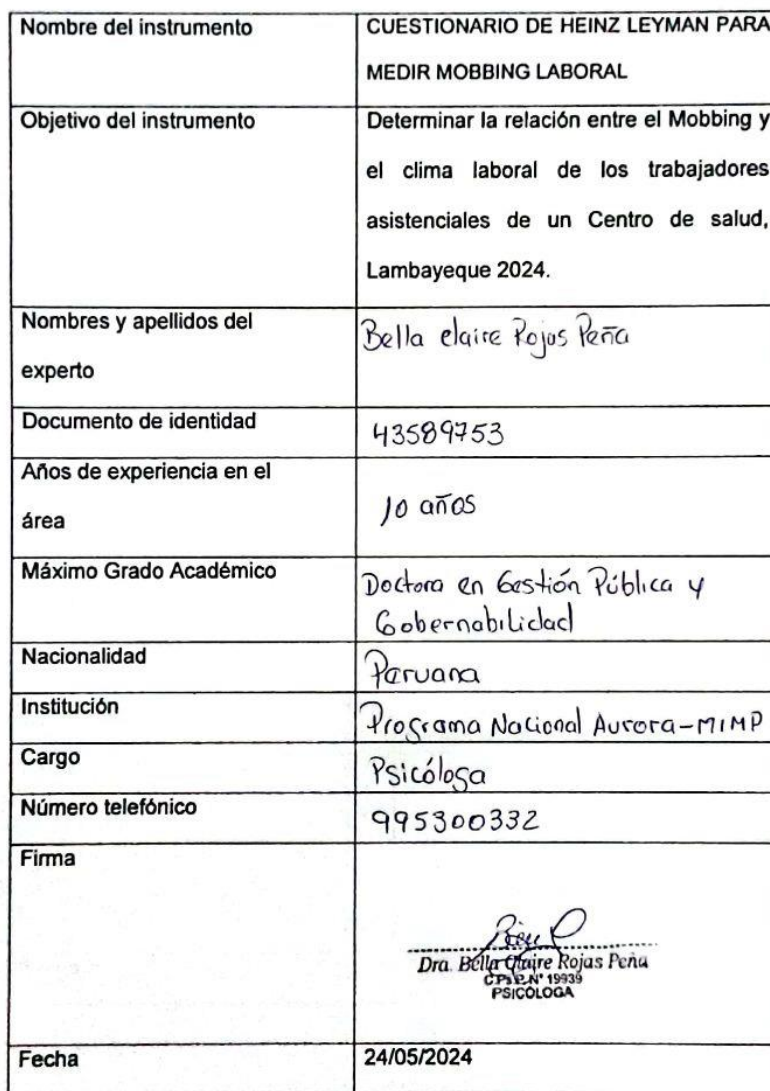 Nombre del instrumento
CUESTIONARIO DE HEINZ LEYMAN PARA
MEDIR MOBBING LABORAL
Objetivo del instrumento
Determinar la relación entre el Mobbing y
el clima laboral de los trabajadores
asistenciales de un Centro de salud,
Lambayeque 2024.
Nombres y apellidos del
experto
Bella claire Rojas Peña
Documento de identidad
43589753
Años de experiencia en el
área
10 años
Máximo Grado Académico
Doctora en Gestión Pública y
Gobernabilidad
Nacionalidad
Peruana
Institución
Programa Nacional Aurora-MIMP
Cargo
Psicóloga
Número telefónico
995300332
Firma
Dra. Bella Claire Rojas Peña
C.Ps.P. N° 19939
PSICÓLOGA
Fecha
24/05/2024